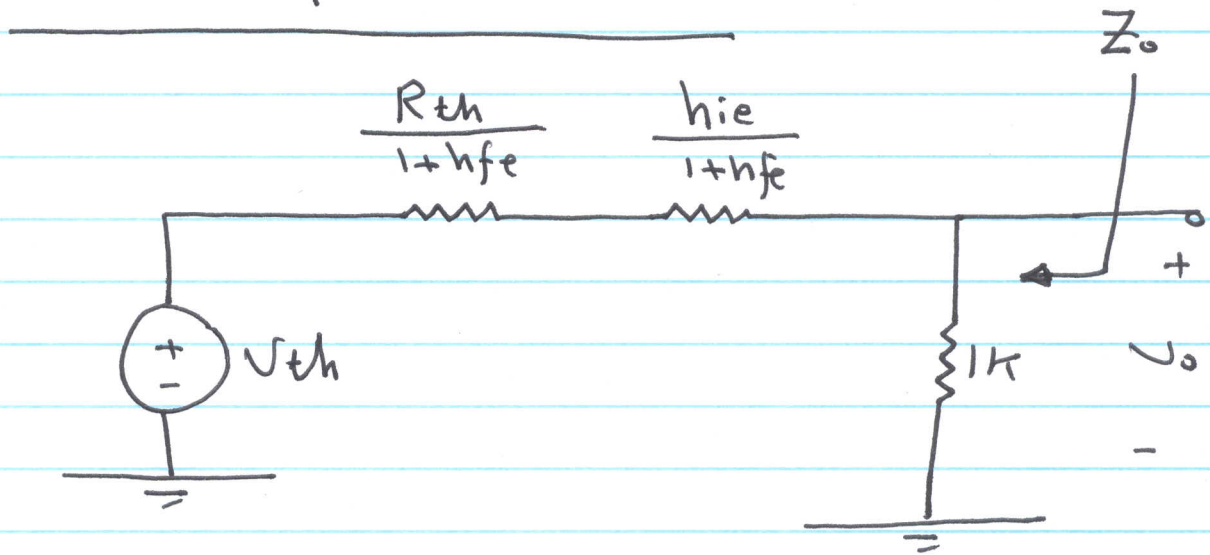 Zo
Rth
1+hfe
hie
1+hfe
+
-
Vth
1K
+
Vo
-